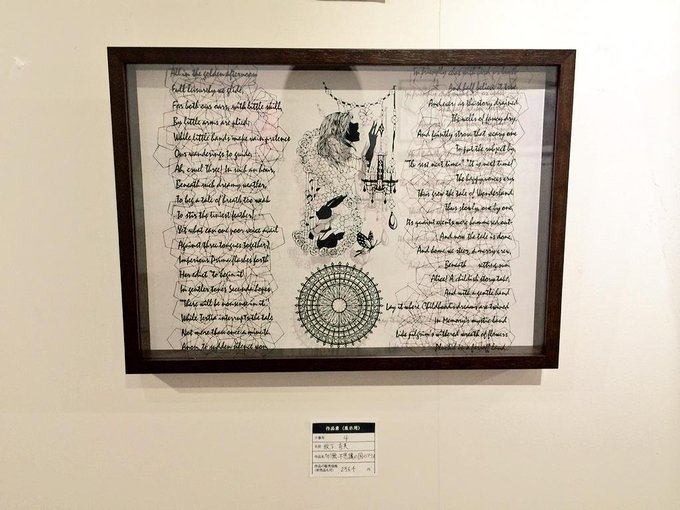 All in the golden afternoon
Full leisurely we glide,
For both our oars, with little skill,
By little arms are plied;
While little hands make vain pretence
Our wanderings to guide,
Ah, cruel Three! In such an hour,
Beneath such dreamy weather,
To beg a tale of breath too weak
To stir the tiniest feather!
Yet what can one poor voice avail
Against three tongues together?
Imperious Prima flashes forth
Her edict "to begin it"
In gentler tones Secunda hopes
"There will be nonsense in it"
While Tertia interrupts the tale
Not more than once a minute.
Anon, to sudden silence won,
In friendly chat with bird or beast
And half believe it true.
And ever, as the story drained
The wells of fancy dry,
And faintly strove that weary one
To put the subject by,
"The rest next time" "It is next time!"
The happy voices cry.
Thus grew the tale of Wonderland
Thus slowly, one by one,
Its quaint events were hammered out
And now the tale is done,
And home we steer, a merry crew,
Beneath setting sun.
Alice! A childish story take,
And with a gentle hand
Lay it where Childhood's dreams are twined
In Memory's mystic band
Like pilgrim's withered wreath of flowers
Plucked in a far-off land.
作品票(展示用)
4
名前
作品名 不思議の国のアリス
作品の販売価格
円